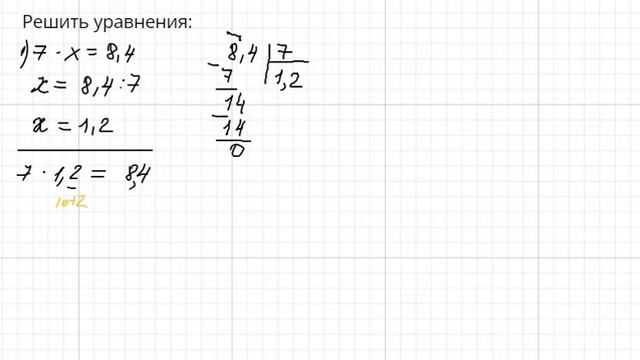 Решить уравнения:
1) 7 · x = 8,4
x = 8,4 : 7
x = 1,2
7 · 1,2 = 8,4
10+2
8,4 | 7
- 7 | 1,2
14
- 14
0